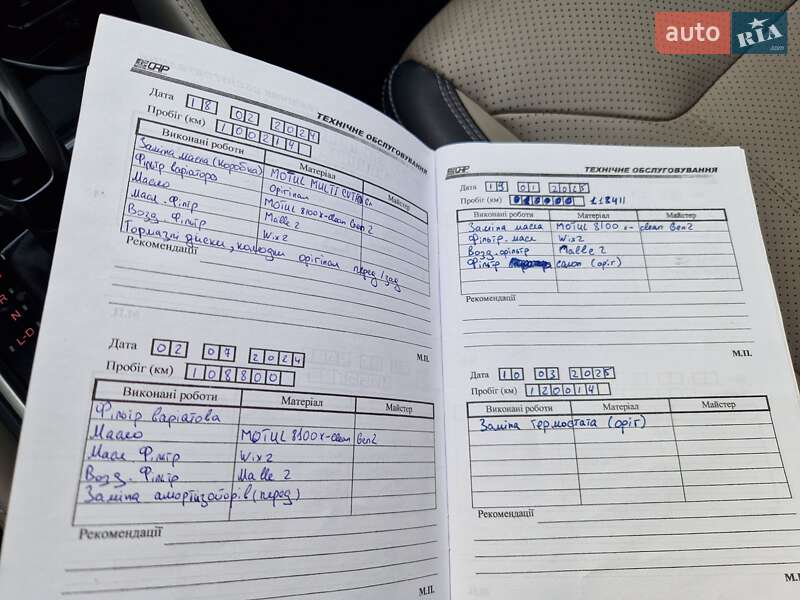 auto RIA .com
CAR
ТЕХНІЧНЕ ОБСЛУГОВУВАННЯ
Дата 18 02 2024
Пробіг (км) 100214
Виконані роботи Матеріал Майстер
Заміна масла (коробка) MOTUL MULTI CVTF
Фільтр варіатора Орігінал
Масло MOTUL 8100 x-clean Gen2
Масл. Фільтр Malle 2
Возд. Фільтр Wix 2
Тормазні диски, колодки орігінал перед/зад
Рекомендації
М.П.
Дата 02 07 2024
Пробіг (км) 108800
Виконані роботи Матеріал Майстер
Фільтр варіатова
Масло MOTUL 8100 x-clean Gen2
Масл Фільтр Wix 2
Возд. Фільтр Malle 2
Заміна амортизаторів (перед)
Рекомендації
М.П.
CAR
ТЕХНІЧНЕ ОБСЛУГОВУВАННЯ
Дата 19 01 2025
Пробіг (км) 118411
Виконані роботи Матеріал Майстер
Заміна масла MOTUL 8100 x-clean Gen2
Фільтр. масл Wix 2
Возд. фільтр Malle 2
Фільтр салон (оріг)
Рекомендації
М.П.
Дата 10 03 2025
Пробіг (км) 120014
Виконані роботи Матеріал Майстер
Заміна термостата (оріг)
Рекомендації
М.П.
R
N
L-D